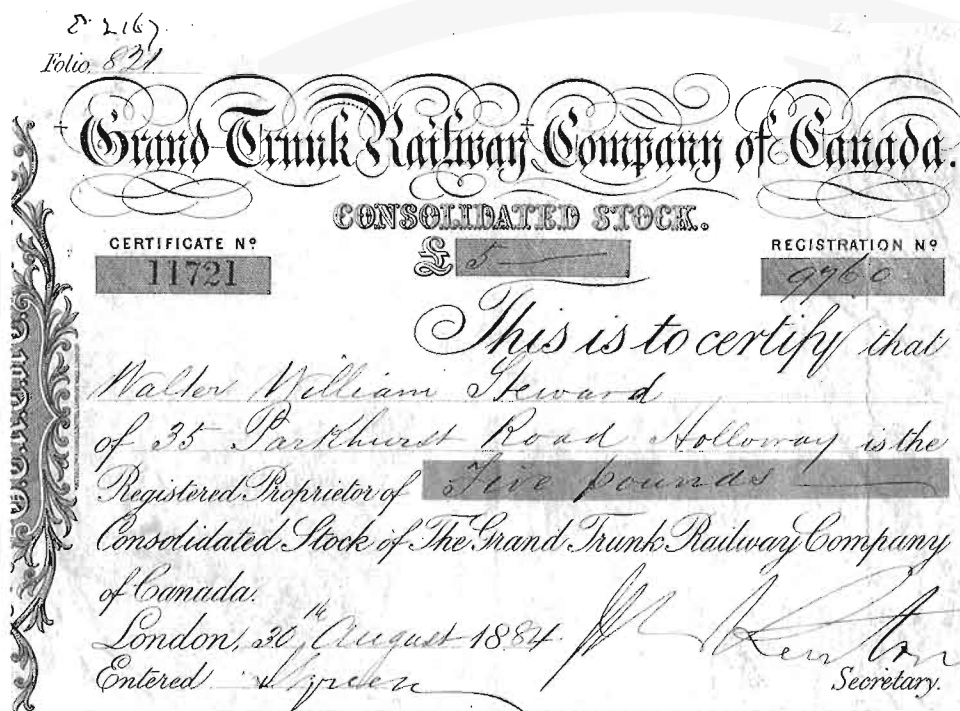 E 2167.
Folio, 821
Grand Trunk Railway Company of Canada.
CONSOLIDATED STOCK.
CERTIFICATE Nº
11721
£ 5
REGISTRATION Nº
9760
This is to certify that
Walter William Steward
of 35 Parkhurst Road Holloway is the
Registered Proprietor of Five pounds
Consolidated Stock of The Grand Trunk Railway Company
of Canada.
London, 30th August 1884.
Entered
Secretary.